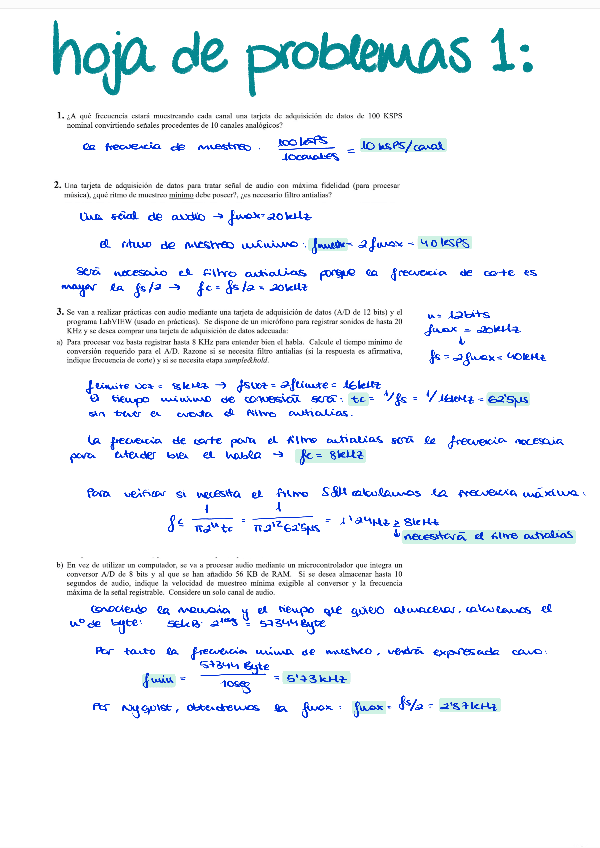 hoja de problemas 1:
1. ¿A qué frecuencia estará muestreando cada canal una tarjeta de adquisición de datos de 100 KSPS
nominal convirtiendo señales procedentes de 10 canales analógicos?
la frecuencia de muestreo: 100 kSPS / 10 canales = 10 kSPS/canal
2. Una tarjeta de adquisición de datos para tratar señal de audio con máxima fidelidad (para procesar
música), ¿qué ritmo de muestreo mínimo debe poseer?, ¿es necesario filtro antialias?
Una señal de audio → fmax = 20kHz
el ritmo de muestreo mínimo: fmuestr = 2fmax = 40 kSPS
Será necesario el filtro antialias porque la frecuencia de corte es
mayor la fs/2 → fc = fs/2 = 20kHz
3. Se van a realizar prácticas con audio mediante una tarjeta de adquisición de datos (A/D de 12 bits) y el
programa LabVIEW (usado en prácticas). Se dispone de un micrófono para registrar sonidos de hasta 20
KHz y se desea comprar una tarjeta de adquisición de datos adecuada:
n = 12bits
fmax = 20kHz
↓
fs = 2fmax = 40kHz
a) Para procesar voz basta registrar hasta 8 KHz para entender bien el habla. Calcule el tiempo mínimo de
conversión requerido para el A/D. Razone si se necesita filtro antialias (si la respuesta es afirmativa,
indique frecuencia de corte) y si se necesita etapa sample&hold.
flímite voz = 8kHz → fsvoz = 2flímite = 16kHz
El tiempo mínimo de conversión será: tc = 1/fs = 1/16kHz = 62'5µs
sin tener en cuenta el filtro antialias.
La frecuencia de corte para el filtro antialias será la frecuencia necesaria
para entender bien el habla → fc = 8kHz
Para verificar si necesita el filtro S&H calculamos la frecuencia máxima:
f ≤ 1 / π2ⁿtc = 1 / π2¹²62'5µs = 1'24Hz ≥ 8kHz
↓ necesitará el filtro antialias
b) En vez de utilizar un computador, se va a procesar audio mediante un microcontrolador que integra un
conversor A/D de 8 bits y al que se han añadido 56 KB de RAM. Si se desea almacenar hasta 10
segundos de audio, indique la velocidad de muestreo mínima exigible al conversor y la frecuencia
máxima de la señal registrable. Considere un solo canal de audio.
Conociendo la memoria y el tiempo que quiero almacenar, calculamos el
nº de byte: 56kB · = 57344 Byte
Por tanto la frecuencia mínima de muestreo, vendrá expresada como:
fmin = 57344 Byte / 10seg = 5'73kHz
Por Nyquist, obtendremos la fmax: fmax = fs/2 = 2'87kHz